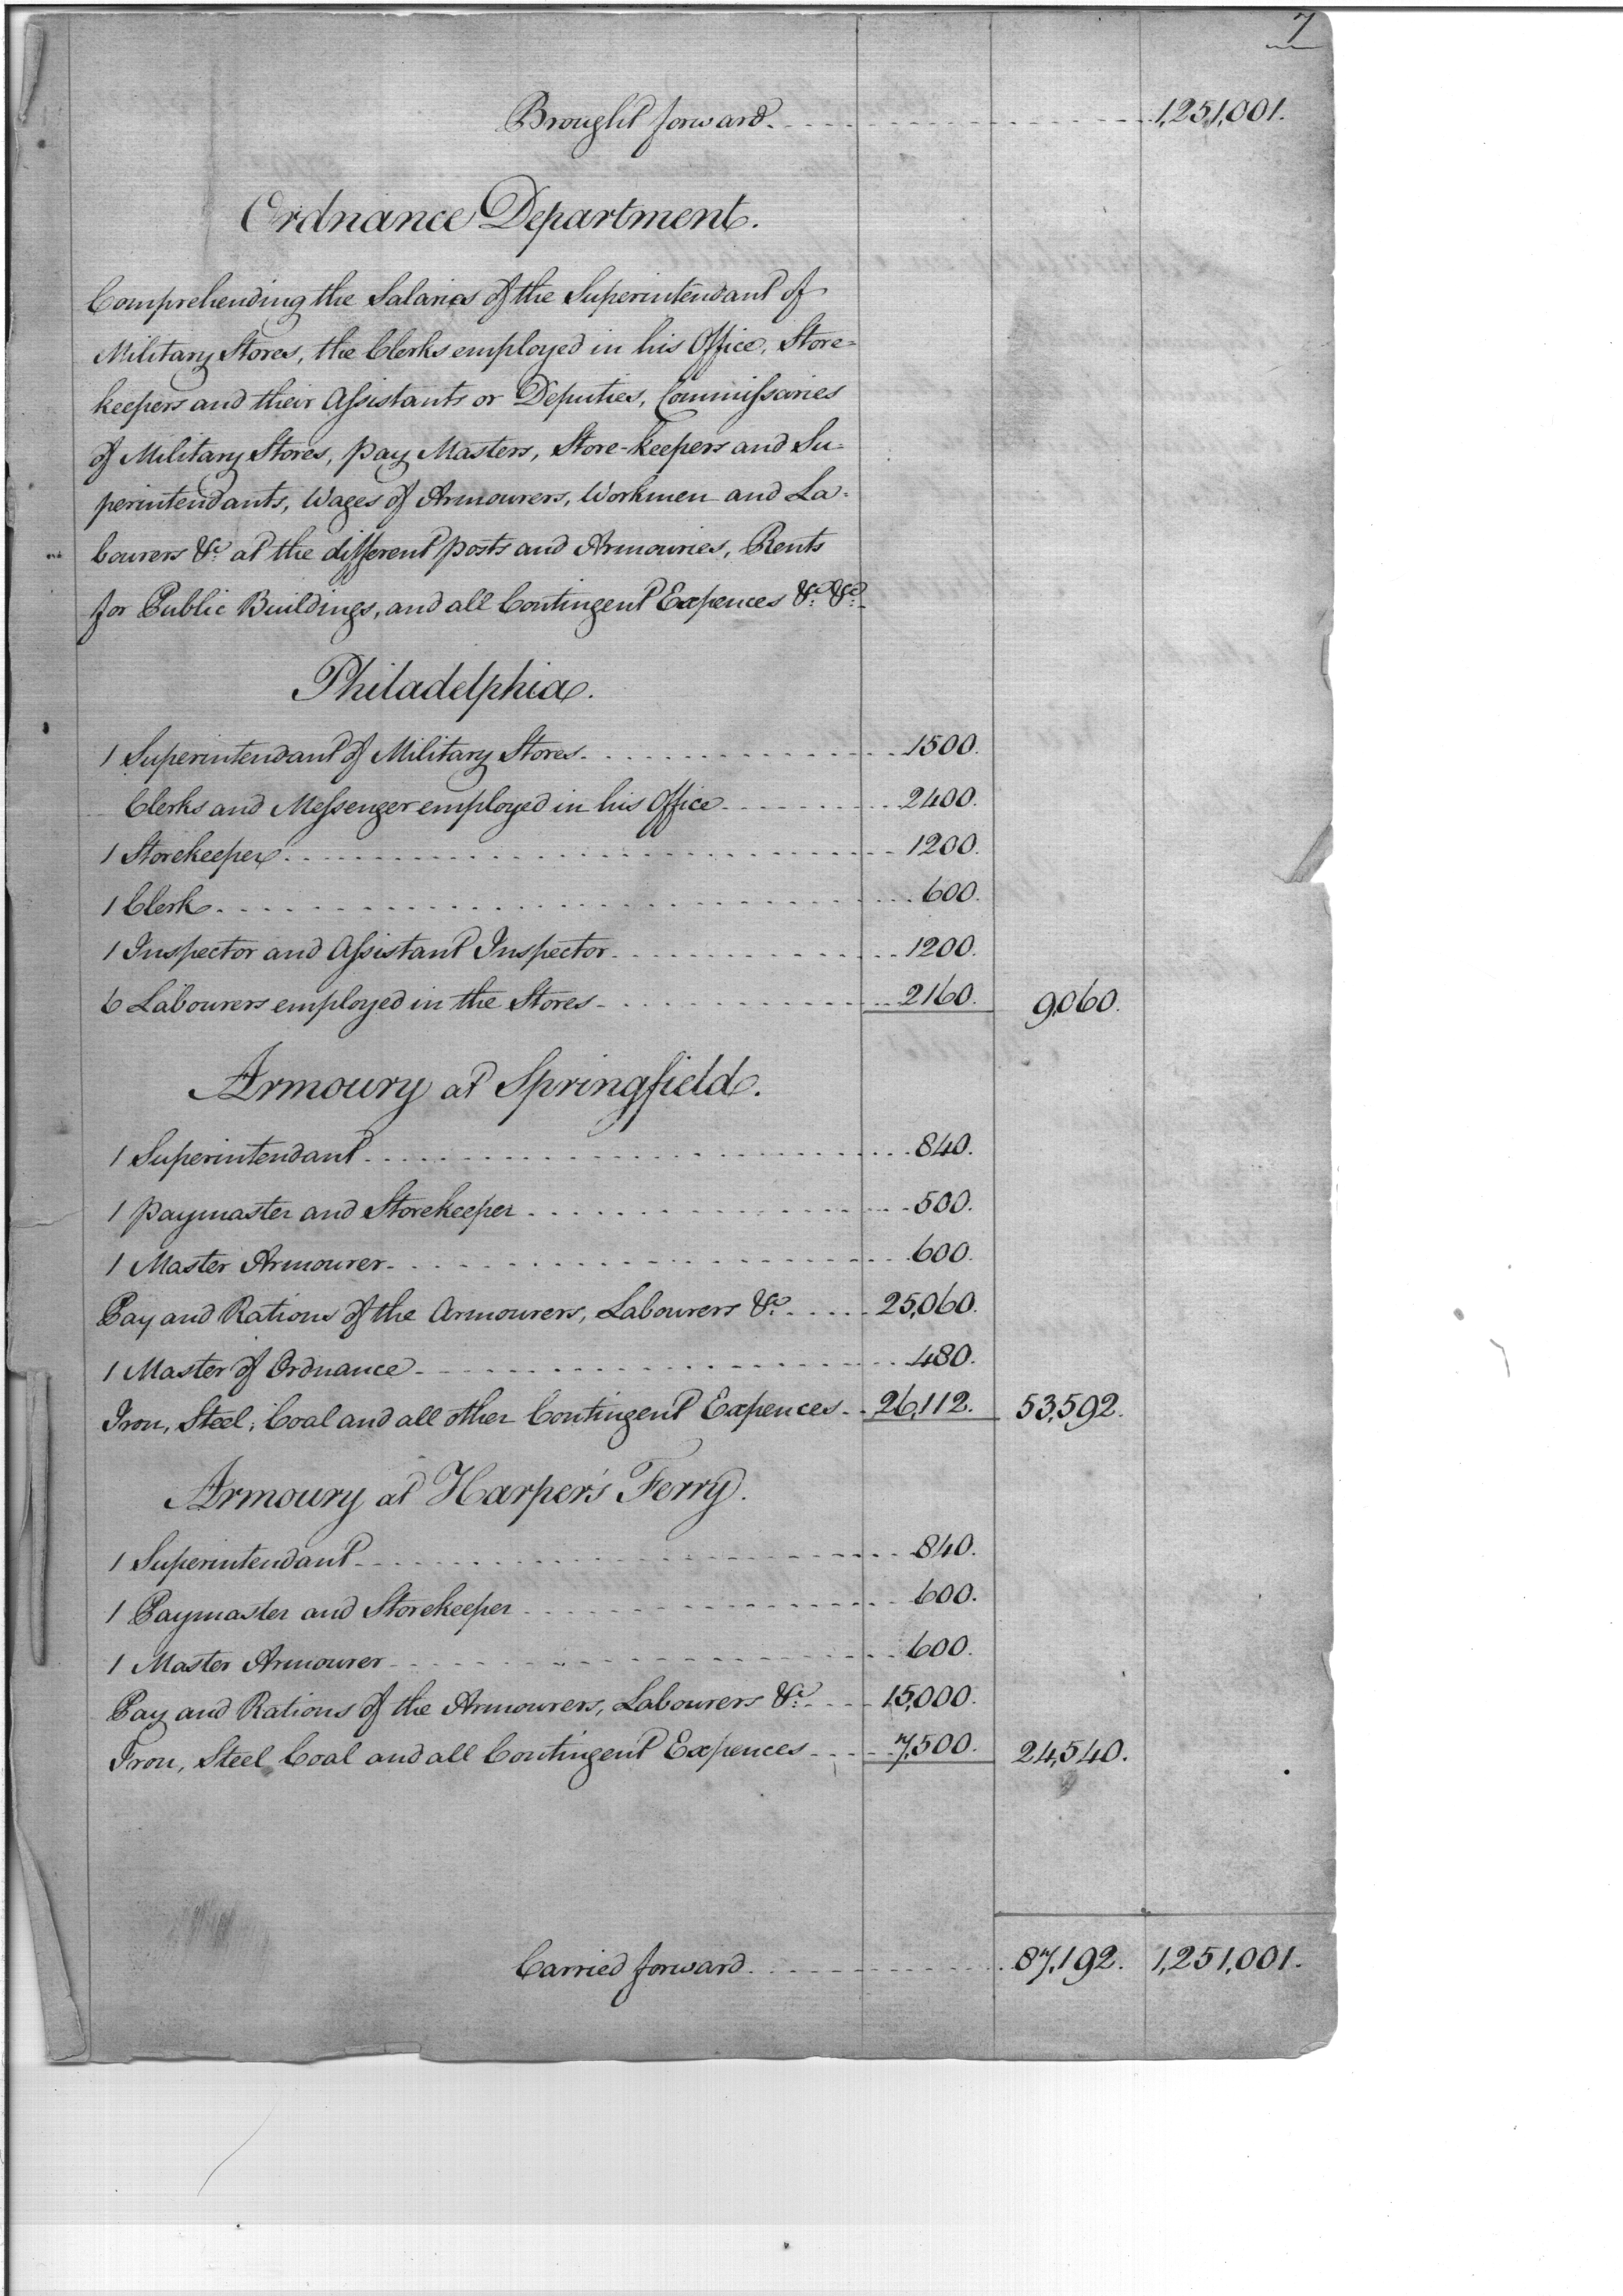 7
Brought forward. 1,251,001.
Ordnance Department.
Comprehending the Salaries of the Superintendant of
Military Stores, the Clerks employed in his Office, Store-
keepers and their Assistants or Deputies, Commissaries
of Military Stores, pay Masters, Store-keepers and Su-
perintendants, Wages of Armourers, Workmen and La-
bourers &c. at the different posts and Armouries, Rents
for Public Buildings, and all Contingent Expences &c. &c.
Philadelphia.
1 Superintendant of Military Stores. 1500.
Clerks and Messenger employed in his Office 2400.
1 Storekeeper 1200.
1 Clerk 600.
1 Inspector and Assistant Inspector 1200.
6 Labourers employed in the Stores 2160. 9,060.
Armoury at Springfield.
1 Superintendant 840.
1 paymaster and Storekeeper 500.
1 Master Armourer 600.
Pay and Rations of the Armourers, Labourers &c. 25,060.
1 Master of Ordnance 480.
Iron, Steel, Coal and all other Contingent Expences 26,112. 53,592.
Armoury at Harper's Ferry.
1 Superintendant 840.
1 Paymaster and Storekeeper 600.
1 Master Armourer 600.
Pay and Rations of the Armourers, Labourers &c. 15,000.
Iron, Steel Coal and all Contingent Expences 7,500. 24,540.
Carried forward. 87,192. 1,251,001.